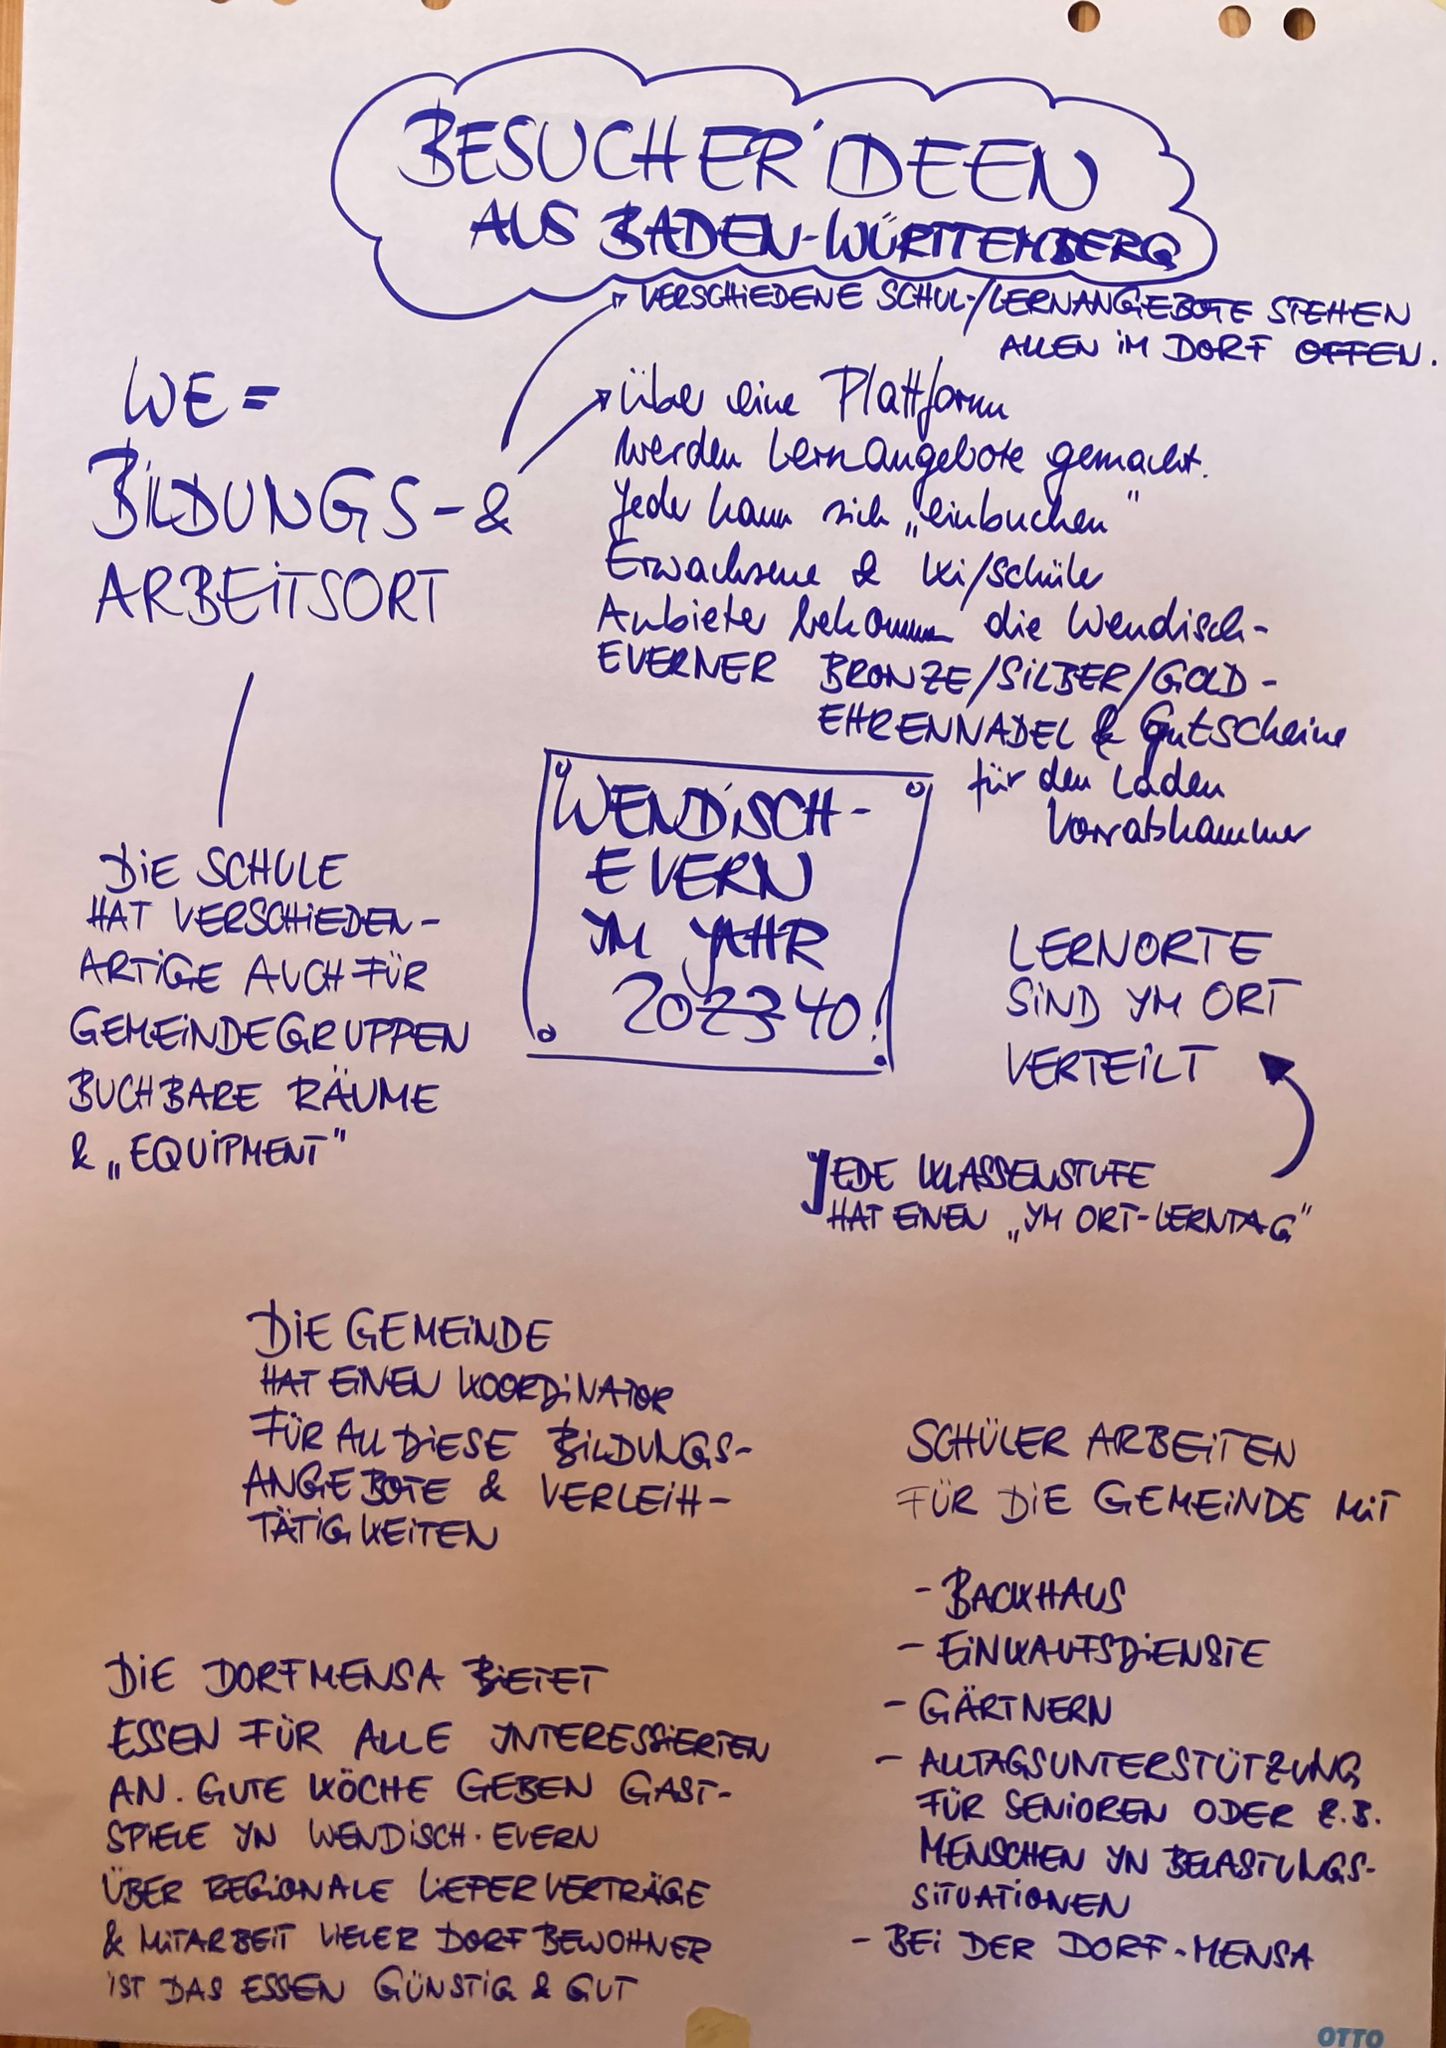 BESUCHER IDEEN
AUS BADEN-WÜRTTEMBERG
VERSCHIEDENE SCHUL-/LERNANGEBOTE STEHEN
ALLEN IM DORF OFFEN.
WE =
BILDUNGS- &
ARBEITSORT
Über eine Plattform
werden Lernangebote gemacht.
Jeder kann sich „einbuchen"
Erwachsene & Ki/Schüler
Anbieter bekommen die Wendisch-
EVERNER BRONZE/SILBER/GOLD-
EHRENNADEL & Gutscheine
für den Laden
Vorratskammer
WENDISCH-
EVERN
IM JAHR
202340!
DIE SCHULE
HAT VERSCHIEDEN-
ARTIGE AUCH FÜR
GEMEINDEGRUPPEN
BUCHBARE RÄUME
& „EQUIPMENT"
LERNORTE
SIND IM ORT
VERTEILT
JEDE KLASSENSTUFE
HAT EINEN „IM ORT-LERNTAG"
DIE GEMEINDE
HAT EINEN KOORDINATOR
FÜR ALL DIESE BILDUNGS-
ANGEBOTE & VERLEIH-
TÄTIGKEITEN
SCHÜLER ARBEITEN
FÜR DIE GEMEINDE MIT
- BACKHAUS
- EINKAUFSDIENSTE
- GÄRTNERN
- ALLTAGSUNTERSTÜTZUNG
FÜR SENIOREN ODER Z.B.
MENSCHEN IN BELASTUNGS-
SITUATIONEN
- BEI DER DORF-MENSA
DIE DORFMENSA BIETET
ESSEN FÜR ALLE INTERESSIERTEN
AN. GUTE KÖCHE GEBEN GAST-
SPIELE IN WENDISCH-EVERN
ÜBER REGIONALE LIEFERVERTRÄGE
& MITARBEIT VIELER DORFBEWOHNER
IST DAS ESSEN GÜNSTIG & GUT
OTTO